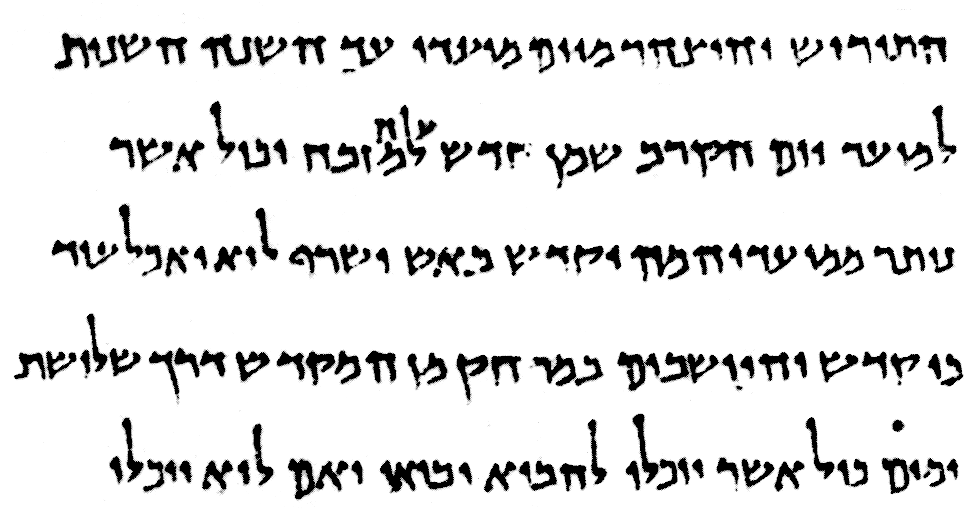 התירוש והיצהר מיום מועדו עד השנה השנית
למועד יום הקרב שמן חדש על המזבח וכול אשר
נותר ממועדיהמה יקדש באש ישרף לוא יאכל עוד
כי קדש והיושבים במרחק מן המקדש דרך שלושת
ימים כול אשר יוכלו להביא יביאו ואם לוא יוכלו